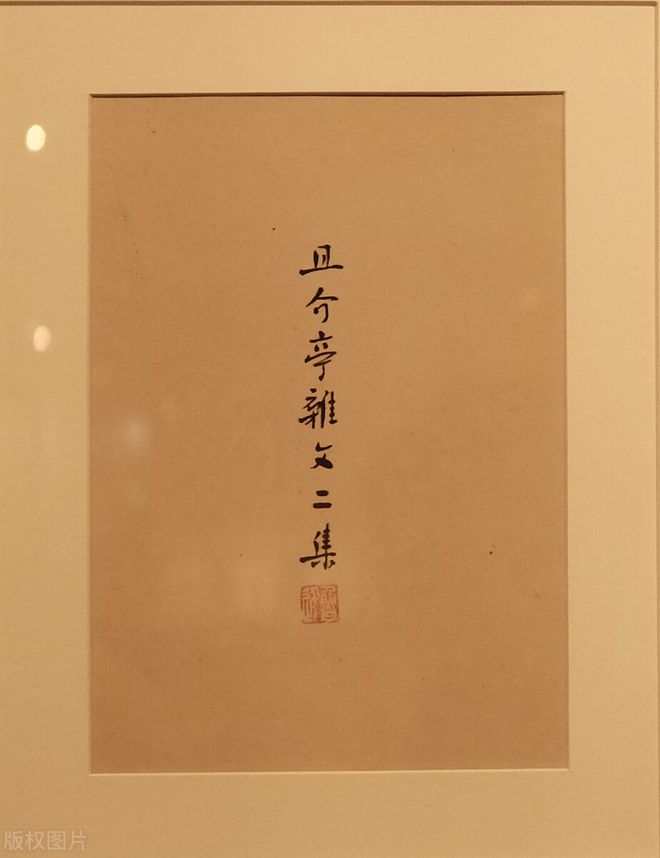 且介亭雜文二集
版权图片